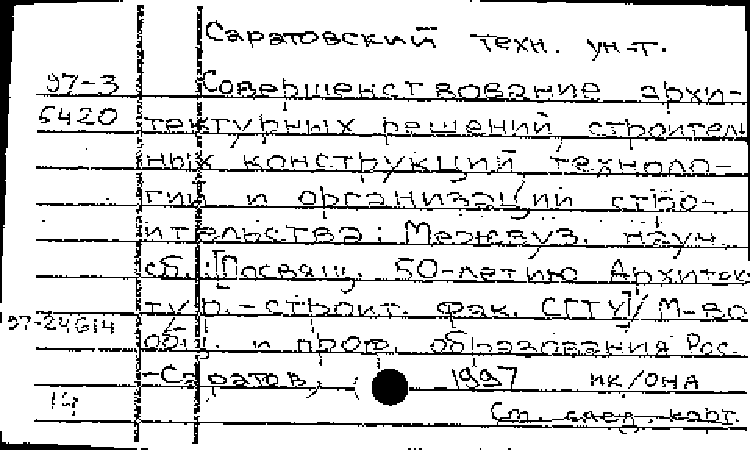 Саратовский техн. ун-т.
97-3 Совершенствование архи-
6420 тектурных решений, строитель
ных конструкций, техноло-
гии и организации стро-
ительства: Межвуз. науч.
сб.: [Посвящ. 50-летию Архитек
тур.-строит. фак. СГТУ] / М-во
97-24614
общ. и проф. образования Рос.
-Саратов, 1997 нк/она
14
См. след. карт.